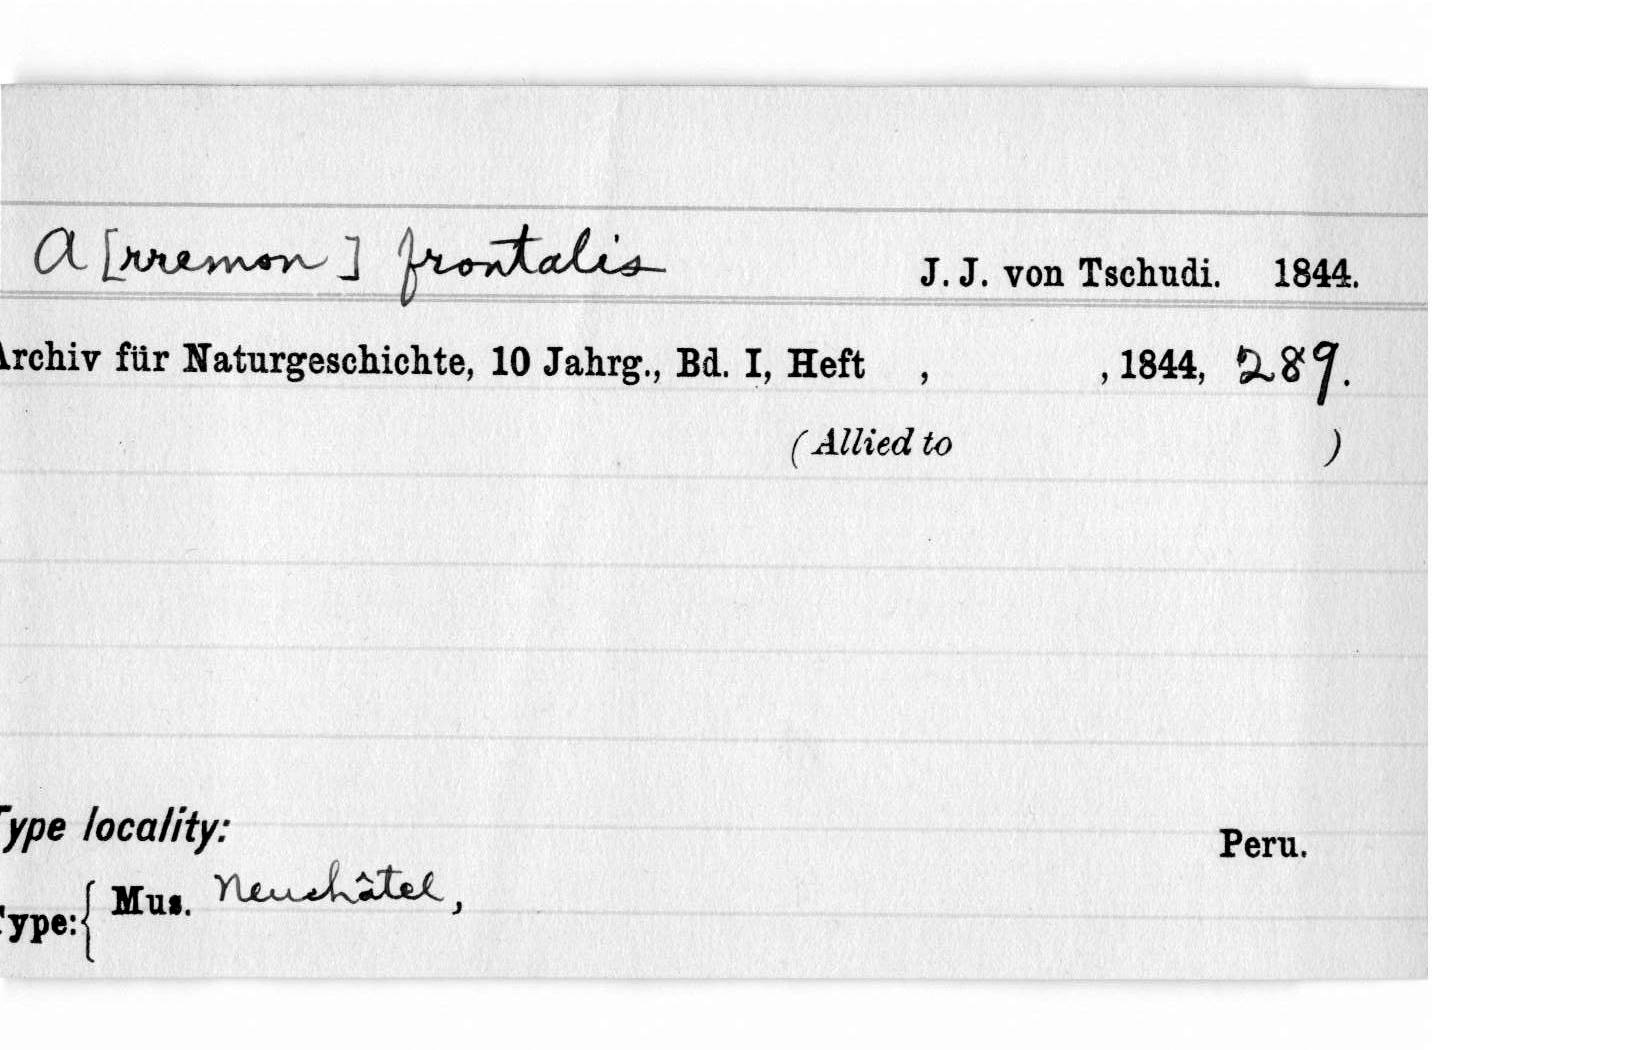 A [rremon] frontalis J. J. von Tschudi. 1844.
Archiv für Naturgeschichte, 10 Jahrg., Bd. I, Heft , , 1844, 289.
(Allied to )
Type locality: Peru.
Type: { Mus. Neuchâtel,